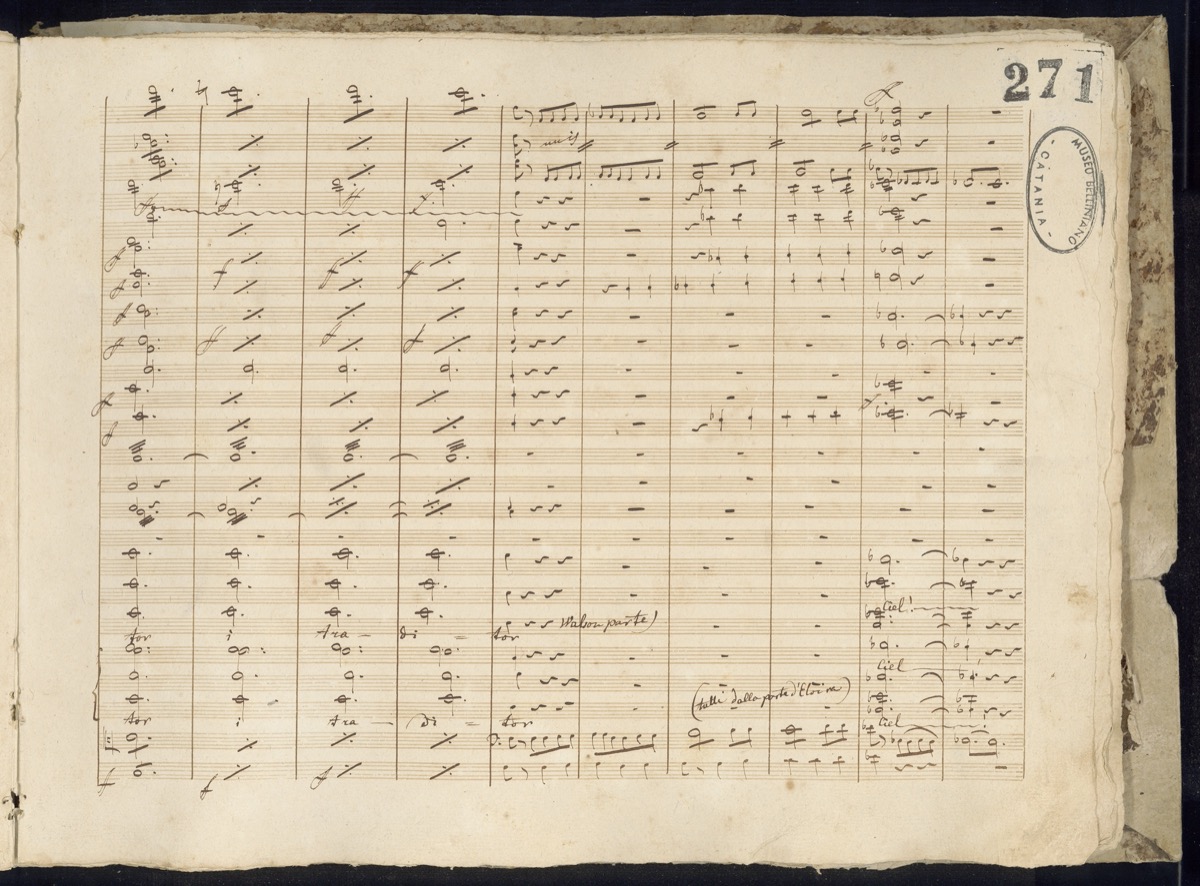 271
MUSEO BELLINIANO
- CATANIA -
unis
Walson parte)
Ciel!
tor i tra - di = tor
Ciel
(tutti dalla porte d'Eloisa)
tor i tra - di = tor
Ciel